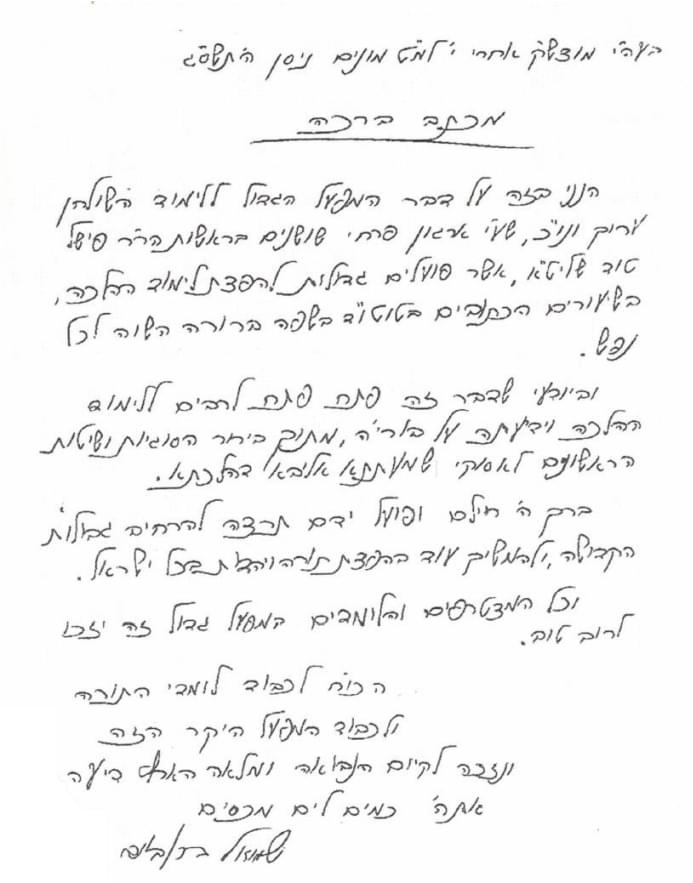 בעה"י מוצש"ק אחרי י' למ"ט מונים ניסן ה'תשס"ג
מכתב ברכה
הנני בזה על דבר המפעל הגדול ללימוד השולחן
ערוך ונו"כ, שע"י ארגון פרחי שושנים בראשות הר"ר פישל
טוד שליט"א, אשר פועלים גדולות להפצת לימוד ההלכה,
בשיעורים הכתובים בטוטו"ד בשפה ברורה השוה לכל
נפש.
וביודעי שדבר זה פתח פתח לרבים ללימוד
ההלכה וידיעתה על בוריה, מתוך בירור הסוגיות ושיטות
הראשונים לאסוקי שמעתתא אליבא דהלכתא.
ברך ה' חילם ופועל ידם תרצה להרחיב גבולות
הקדושה, ולהמשיך עוד בהפצת תורה ויהדות בכל ישראל.
וכל המצטרפים והלומדים במפעל גדול זה יזכו
לרוב טוב.
הכו"ח לכבוד לומדי התורה
ולכבוד המפעל היקר הזה
ונזכה לקיום הנבואה ומלאה הארץ דיעה
את ה' כמים לים מכסים
שמואל